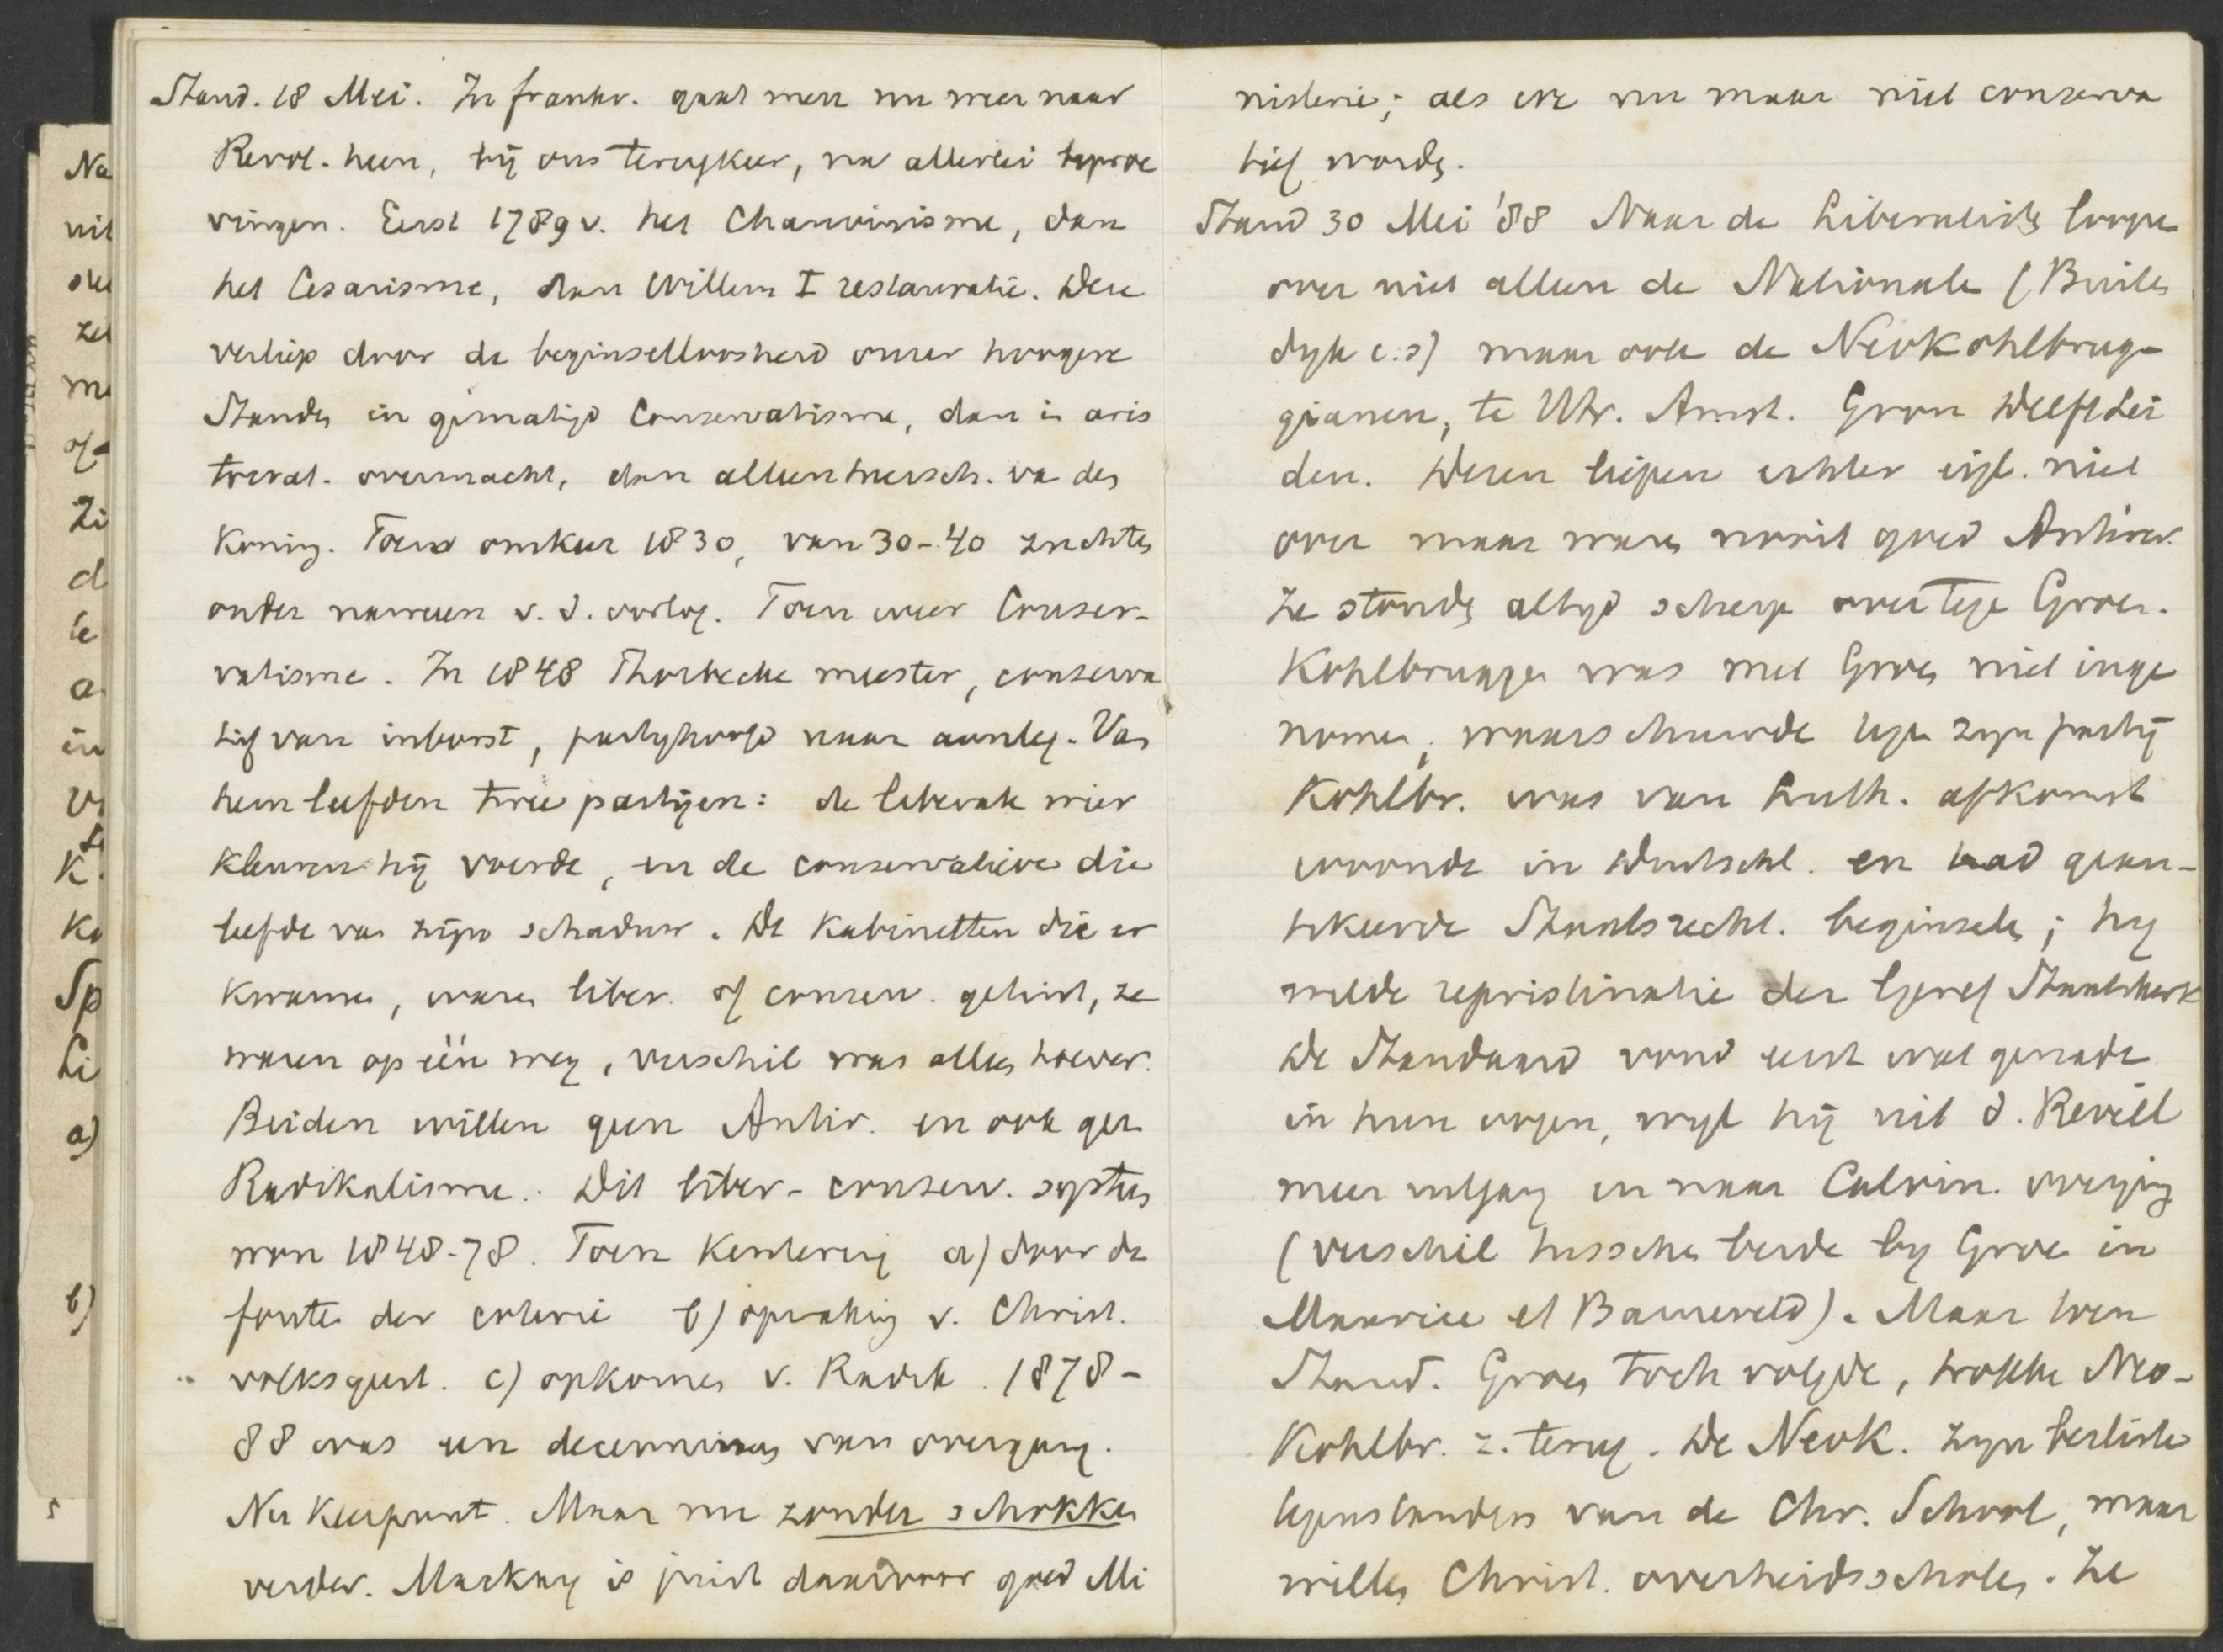 Stand. 18 Mei. In frankr. gaat men nu weer naar
Revol. heen, bij ons terugkeer, na allerlei beproe
vingen. Eerst 1789 v. het Chauvinisme, dan
het Cesarisme, dan Willem I restauratie. Deze
verliep door de beginselloosheid onzer hoogere
Standen in gematigd Conservatisme, dan in aris
tocrat. overmacht, dan alleenheersch. va den
Koning. Toen omkeer 1830, van 30-40 zuchten
onder naweeen v. d. oorlog. Toen weer Conser-
vatisme. In 1848 Thorbecke meester, conserva
tief van inborst, partyhoofd naar aanleg. Van
hem leefden twee partijen: de liberale wier
kleuren hij voerde, en de conservatieve die
leefde van zijn schaduw. De Kabinetten die er
kwamen, waren liber. of conserv. getint, ze
waren op één weg, verschil was alleen hoever.
Beiden willen geen Antir. en ook geen
Radikalisme. Dit liber-conserv. systeem
van 1848-78. Toen Kentering a) door de
fouten der coterie b) opwaking v. Christ.
volksgeest. c) opkomen v. Radik. 1878-
88 was een decennium van overgang.
Nu Keerpunt. Maar nu zonder schokken
verder. Mackay is juist daarvoor goed Mi
nisterie; als ere nu maar niet conserva
tief worden.
Stand 30 Mei '88 Naar de Liberalisten loopen
over niet alleen de Nationale (Buiten
dyk c.s) maar ook de NeoKohlbrug-
gianen, te Utr. Amst. Gron Delft Lei
den. Dezen liepen echter eigl. niet
over maar waren nooit goed Antirev.
Ze stonden altyd scherp over tege Groen.
Kohlbrugge was met Groen niet inge
nomen, waarschuwde tegen zyn partij
Kohlbr. was van Luth. afkomst
woonde in Duitschl. en had gean-
tikeerde Staatsrecht. beginselen; hy
wilde repristinatie der Geref Staatskerk
De Standaard vond eerst wat genade
in hun oogen, wyl hij uit d. Reveil
meer uitging en naar Calvin. overging
(verschil tusschen beide by Groen in
Maurice et Barneveld). Maar toen
Stand. Groen toch volgde, trokken Neo-
Kohlbr. z. terug. De NeoK. zyn besliste
tegenstanders van de Chr. School, maar
willen Christ. overheidsscholen. Ze